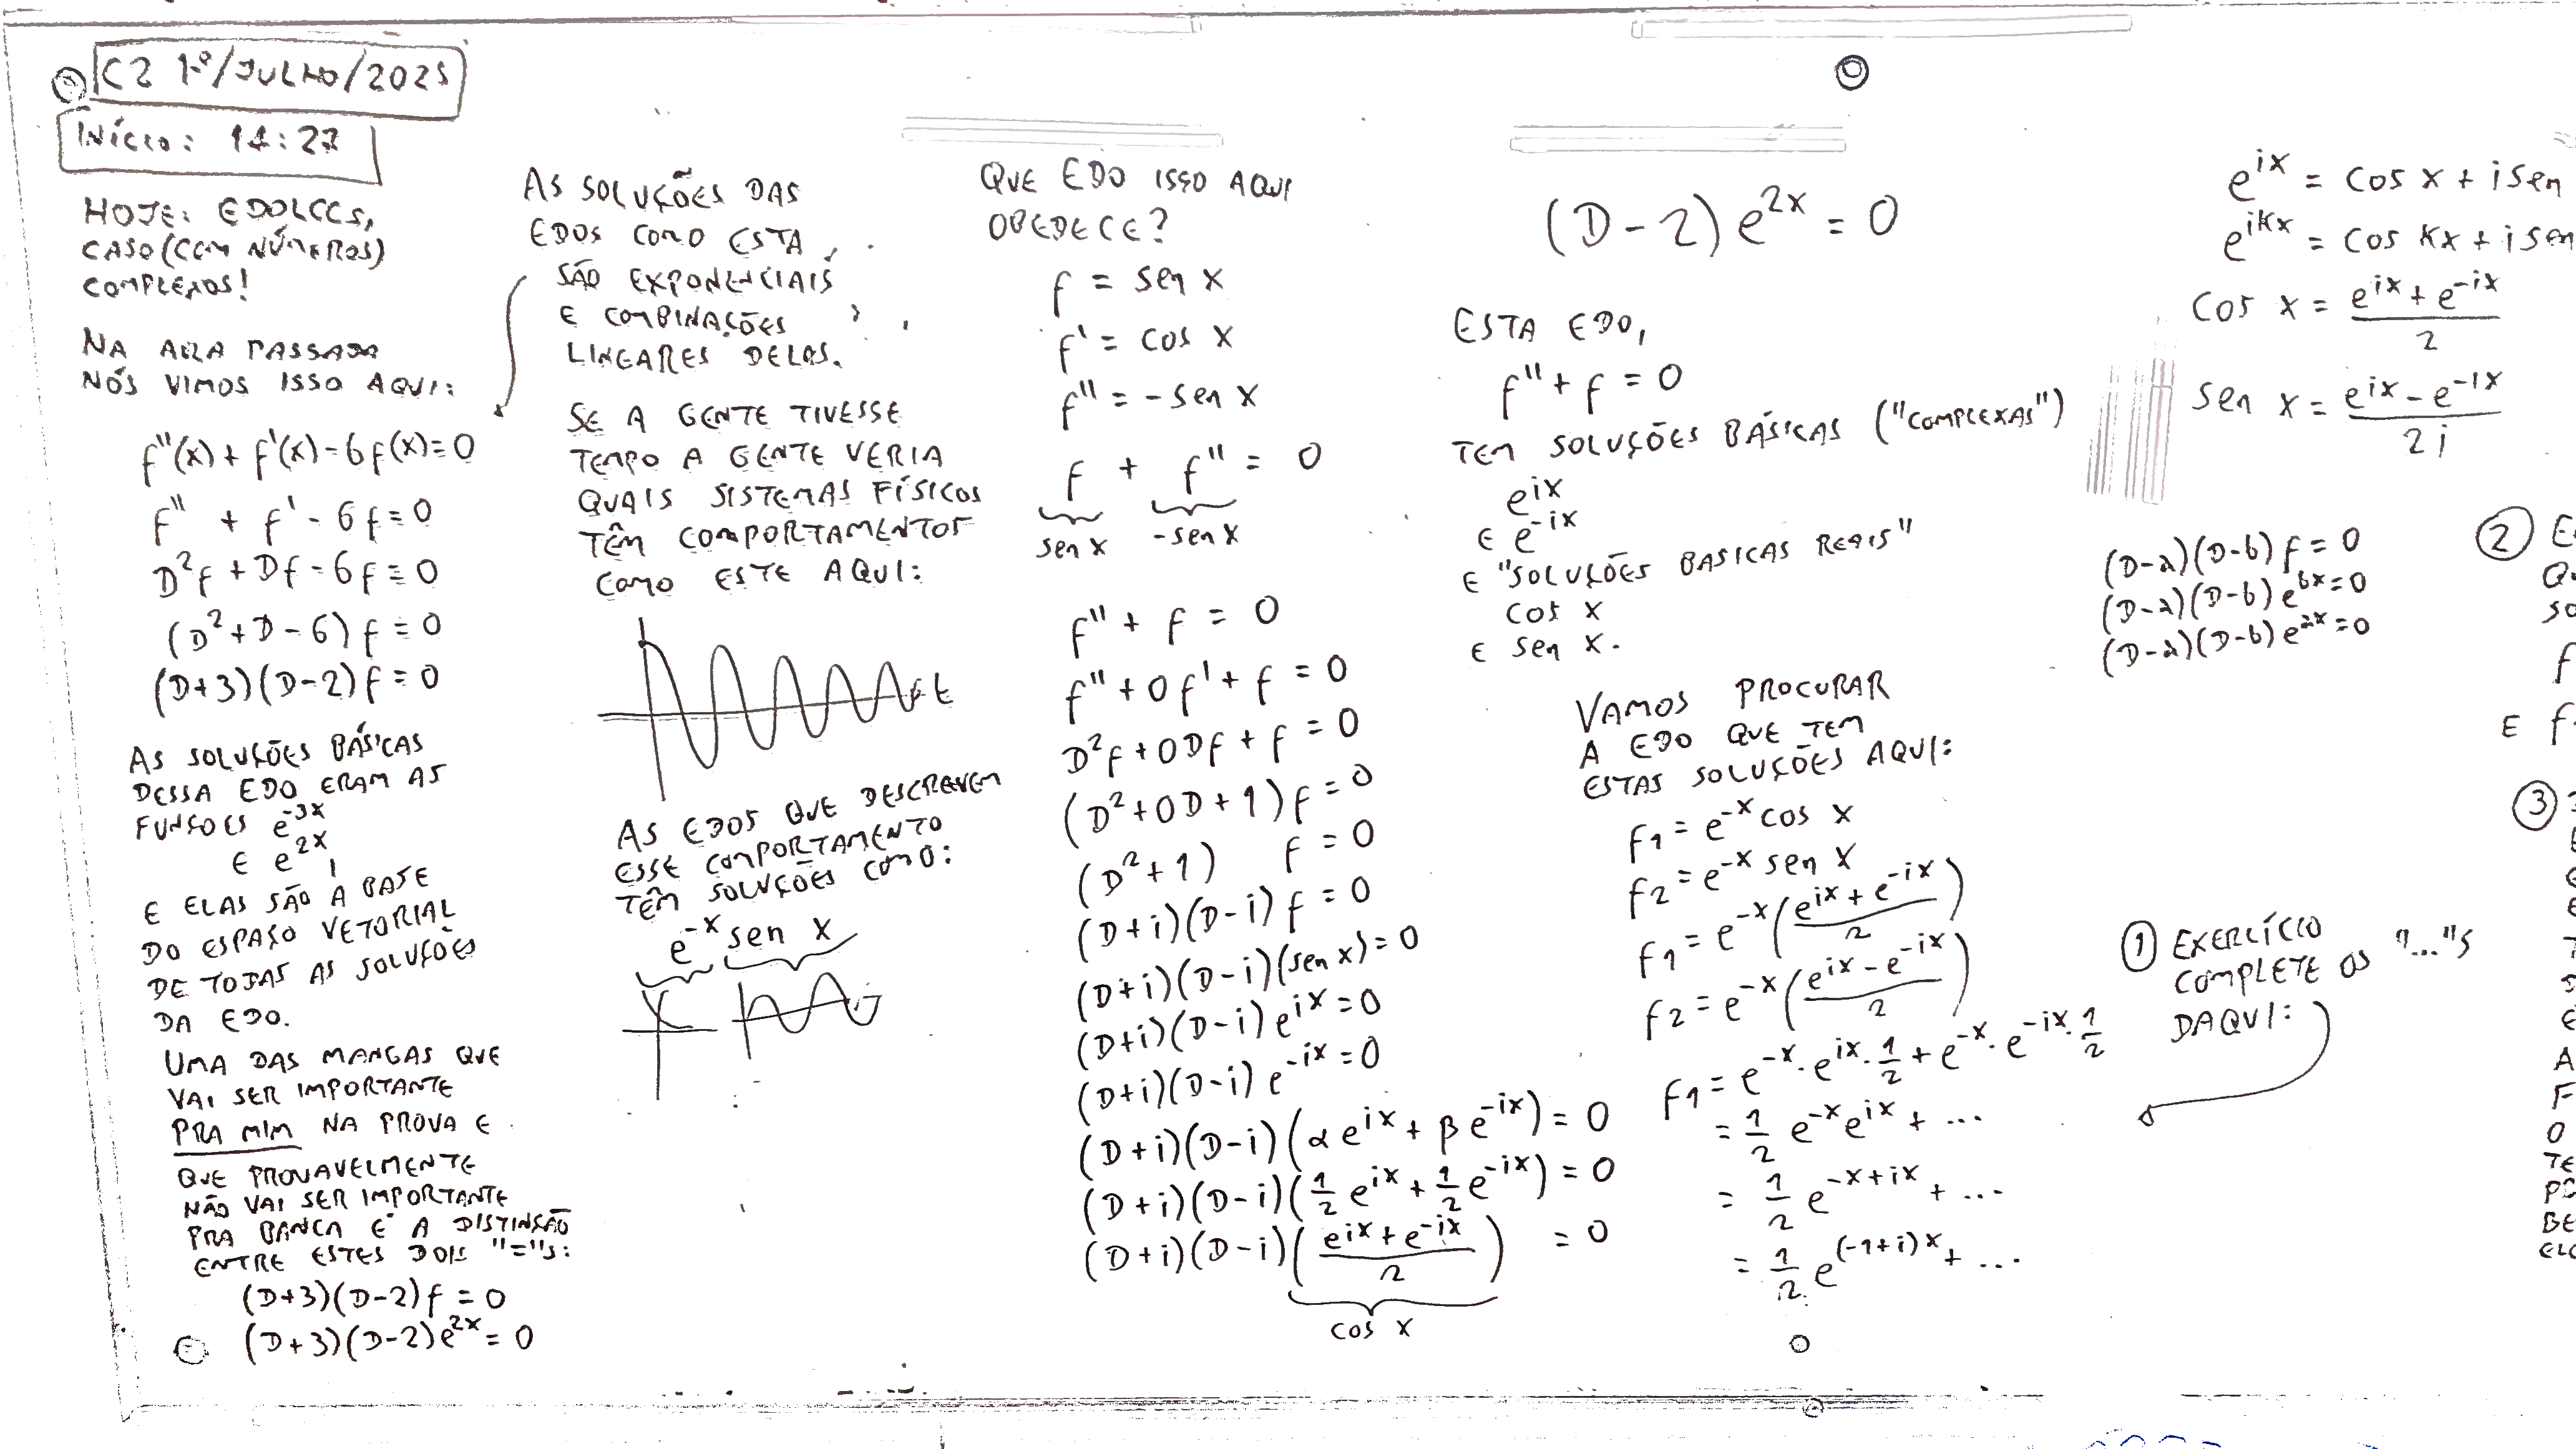 C2 1º/JULHO/2025
INÍCIO: 14:27
HOJE: EDOLCCS,
CASO (COM NÚMEROS)
COMPLEXOS!
NA AULA PASSADA
NÓS VIMOS ISSO AQUI:
f''(x) + f'(x) - 6f(x) = 0
f'' + f' - 6f = 0
D²f + Df - 6f = 0
(D² + D - 6) f = 0
(D+3)(D-2) f = 0
AS SOLUÇÕES BÁSICAS
DESSA EDO ERAM AS
FUNÇOES e^{-3x}
E e^{2x},
E ELAS SÃO A BASE
DO ESPAÇO VETORIAL
DE TODAS AS SOLUÇÕES
DA EDO.
UMA DAS MANGAS QUE
VAI SER IMPORTANTE
PRA MIM NA PROVA E
QUE PROVAVELMENTE
NÃO VAI SER IMPORTANTE
PRA BANCA É A DISTINÇÃO
ENTRE ESTES DOIS "="s:
(D+3)(D-2) f = 0
(D+3)(D-2) e^{2x} = 0
AS SOLUÇÕES DAS
EDOS COMO ESTA
SÃO EXPONENCIAIS
E COMBINAÇÕES
LINEARES DELAS.
SE A GENTE TIVESSE
TEMPO A GENTE VERIA
QUAIS SISTEMAS FÍSICOS
TÊM COMPORTAMENTOS
COMO ESTE AQUI:
t
AS EDOS QUE DESCREVEM
ESSE COMPORTAMENTO
TÊM SOLUÇÕES COMO:
e^{-x} sen x
QUE EDO ISSO AQUI
OBEDECE?
f = sen x
f' = cos x
f'' = -sen x
f + f'' = 0
sen x -sen x
f'' + f = 0
f'' + 0f' + f = 0
D²f + 0Df + f = 0
(D² + 0D + 1) f = 0
(D² + 1) f = 0
(D+i)(D-i) f = 0
(D+i)(D-i)(sen x) = 0
(D+i)(D-i) e^{ix} = 0
(D+i)(D-i) e^{-ix} = 0
(D+i)(D-i)(α e^{ix} + β e^{-ix}) = 0
(D+i)(D-i)(1/2 e^{ix} + 1/2 e^{-ix}) = 0
(D+i)(D-i)((e^{ix} + e^{-ix})/2) = 0
cos x
(D-2) e^{2x} = 0
ESTA EDO,
f'' + f = 0
TEM SOLUÇÕES BÁSICAS ("COMPLEXAS")
e^{ix}
E e^{-ix}
E "SOLUÇÕES BASICAS REAIS"
cos x
E sen x.
VAMOS PROCURAR
A EDO QUE TEM
ESTAS SOLUÇÕES AQUI:
f1 = e^{-x} cos x
f2 = e^{-x} sen x
f1 = e^{-x}((e^{ix} + e^{-ix})/2)
f2 = e^{-x}((e^{ix} - e^{-ix})/2)
f1 = e^{-x}·e^{ix}·1/2 + e^{-x}·e^{-ix}·1/2
= 1/2 e^{-x}e^{ix} + ...
= 1/2 e^{-x+ix} + ...
= 1/2 e^{(-1+i)x} + ...
e^{ix} = cos x + i sen
e^{ikx} = cos kx + i sen
cos x = (e^{ix} + e^{-ix})/2
sen x = (e^{ix} - e^{-ix})/2i
(D-a)(D-b) f = 0
(D-a)(D-b) e^{bx} = 0
(D-a)(D-b) e^{ax} = 0
① EXERCÍCIO
COMPLETE OS "..."s
DAQUI:
②
E f
③